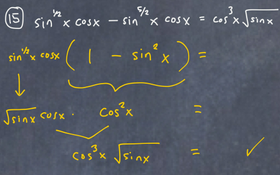 ⑮ sin^{1/2}x cosx − sin^{5/2}x cosx = cos³x √sinx
sin^{1/2}x cosx ( 1 − sin²x ) =
√sinx cosx · cos²x =
cos³x √sinx = ✓